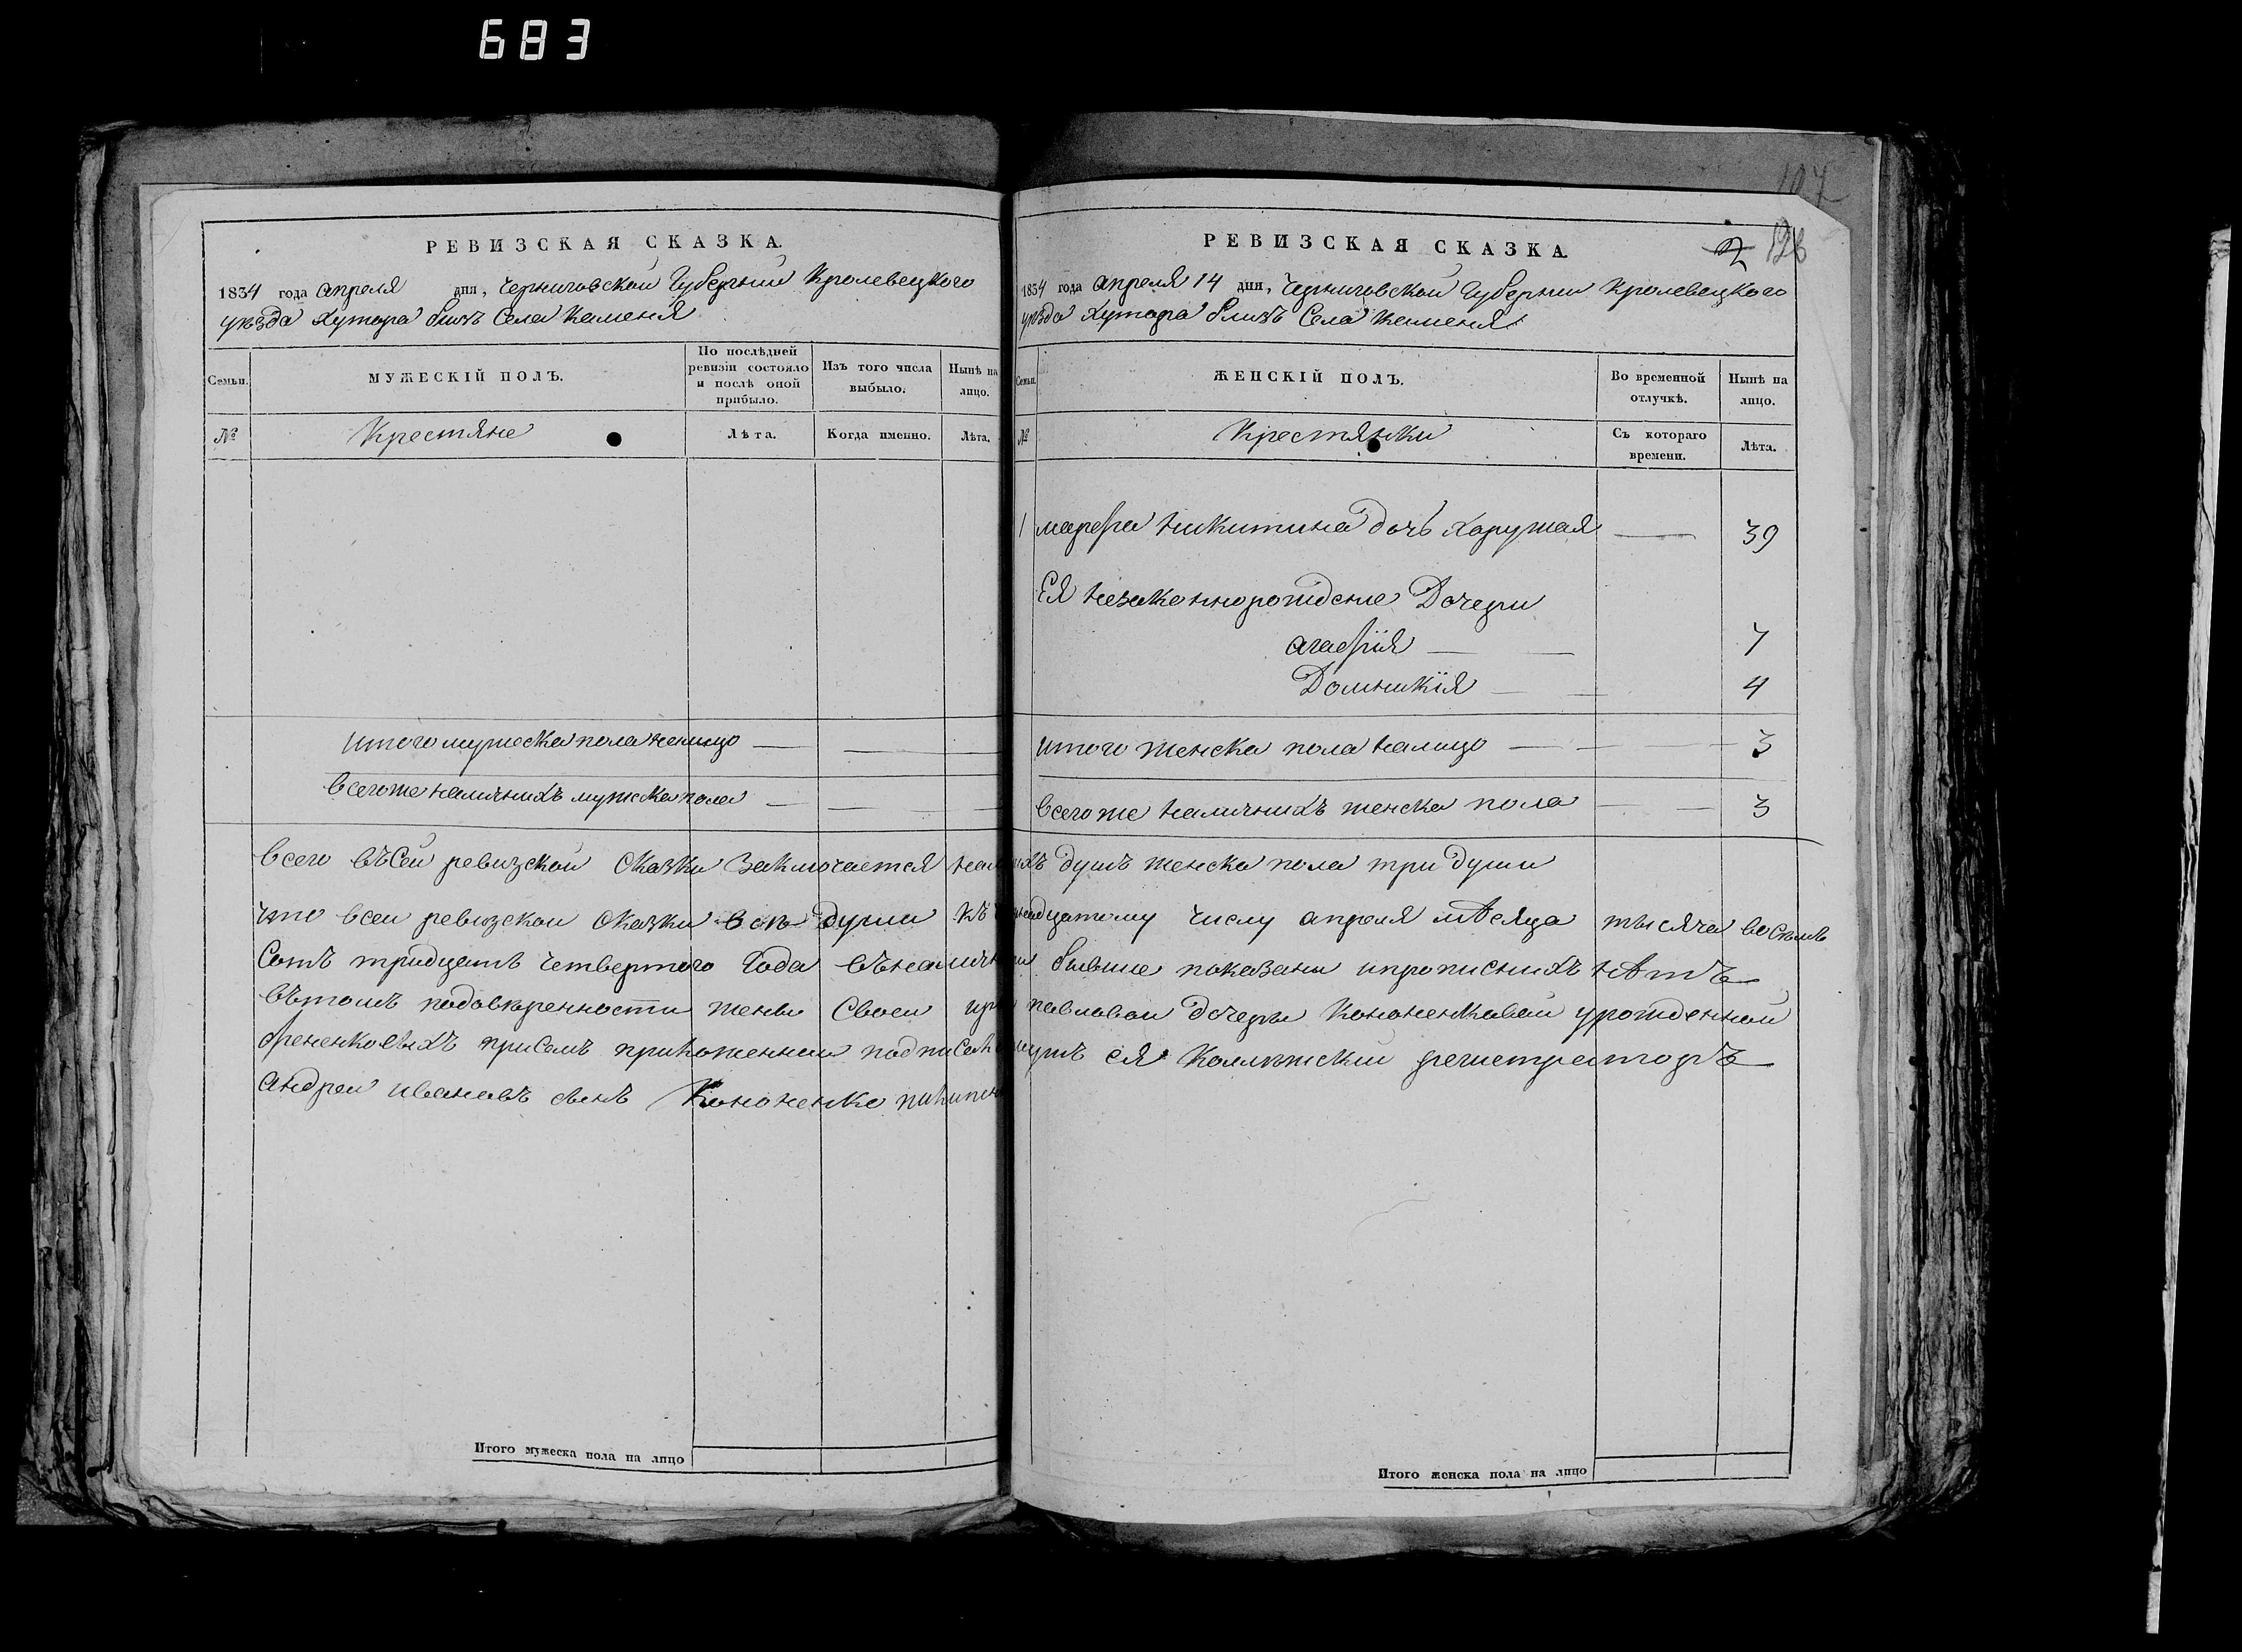 683
РЕВИЗСКАЯ СКАЗКА.
1834 года апреля дня, Черниговской Губернии Кролевецкого
уѣзда Хутора близъ Села Каменя
Семьи.
МУЖЕСКІЙ ПОЛЪ.
По послѣдней ревизіи состояло и послѣ оной прибыло.
Изъ того числа выбыло.
Нынѣ на лицо.
№
Крестяне
Лѣта.
Когда именно.
Лѣта.
итого мужеска пола налицо — — —
всегоже наличнихъ мужеска пола — — —
Итого мужеска пола на лицо
197
РЕВИЗСКАЯ СКАЗКА
2
1834 года апреля 14 дня, Черниговской Губернии Кролевецкого
уѣзда Хутора близъ Села Каменя
Семьи.
ЖЕНСКІЙ ПОЛЪ.
Во временной отлучкѣ.
Нынѣ на лицо.
№
Крестянки
Съ котораго времени.
Лѣта.
1 марфа никитина дочь Харужая — 39
Ея незаконнорождение Дочери
агафїя — — 7
Домникїя — — 4
итого женска пола налицо — — — 3
всего же наличнихъ женска пола — — 3
всего въсей ревизской сказки заключается наличнихъ душъ женска пола три души
что всеи ревизскои сказки всѣ души къ дцатому числу апреля мѣсяца тысяча восемъ
сотъ тридцать четвертого года въналичии бывшие показани ипрописнихъ нѣтъ
вътомъ подовѣренности жены своеи павловои дочери Кононенковой урожденной
присемъ приложеннои подписалъ мужъ ея Коллежский регистраторъ
андреи ивановъ сынъ Кононенко
Итого женска пола на лицо